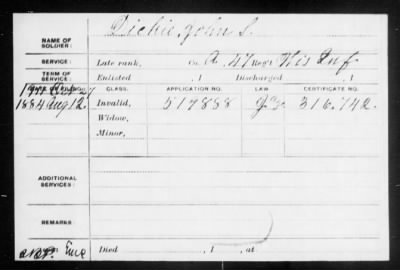 Dickie, John S.
NAME OF SOLDIER:
SERVICE: Late rank, Co. A, 47 Reg't Wis Inf
TERM OF SERVICE: Enlisted , 1 Discharged , 1
DATE OF FILING. CLASS. APPLICATION NO. LAW CERTIFICATE NO.
1884 Aug 12. Invalid, 517888 316.742.
Widow,
Minor,
ADDITIONAL SERVICES:
REMARKS:
Died , 1 , at